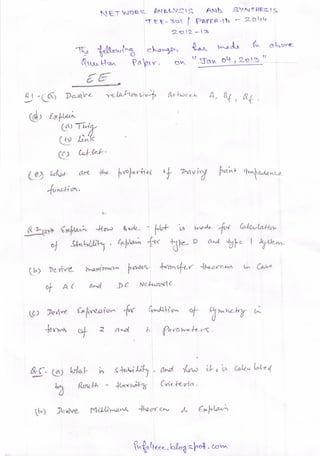 NETWORK ANALYSIS AND SYNTHESIS
TEE-301 / PAPER-ID - 2044
2012-13
The following changes has made in above
Question Paper. on "Jan 04, 2013"
EE
Q1-(a) Derive relationship between
(d) Explain
(a) Twig
(b) Link
(c) Cut-Set.
(e) What are the properties of Driving point impedance
function.
Explain How Bode-plot is made for Calculation
of Stability. Explain for type 0 and type 1 System.
(b) Derive maximum power transfer theorem in Case
of AC and DC Network.
(c) Derive Expression for Condition of Symmetry in
terms of Z and h Parameters.
Q.5. (a) What is Stability and how it is Calculated
by Routh - Hurwitz Criteria.
(b) Derive Millimans theorem & Explain.
infoteee.blogspot.com